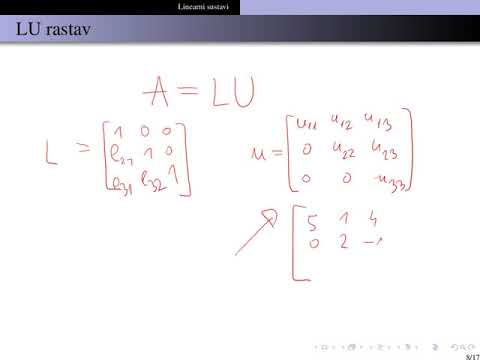 Linearni sustavi
LU rastav
A = LU
L = [1 0 0
l21 1 0
l31 l32 1]
u = [u11 u12 u13
0 u22 u23
0 0 u33]
[5 1 4
0 2
8/17